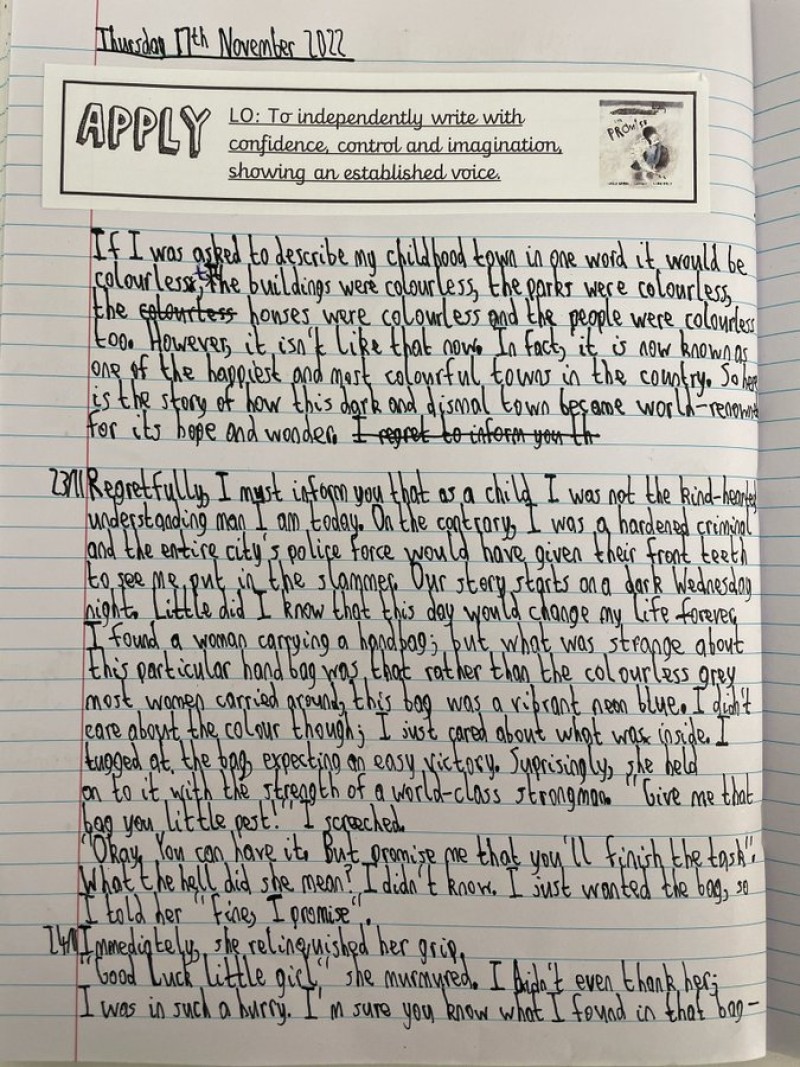 Thursday 17th November 2022
APPLY
LO: To independently write with
confidence, control and imagination,
showing an established voice.
PROMISE
If I was asked to describe my childhood town in one word it would be
colourless; the buildings were colourless, the parks were colourless,
the colourless houses were colourless and the people were colourless
too. However, it isn't like that now. In fact, it is now known as
one of the happiest and most colourful towns in the country. So here
is the story of how this dark and dismal town became world-renown
for its hope and wonder. I regret to inform you th
23/11 Regretfully, I must inform you that as a child I was not the kind-hearted
understanding man I am today. On the contrary, I was a hardened criminal
and the entire city's police force would have given their front teeth
to see me put in the slammer. Our story starts on a dark Wednesday
night. Little did I know that this day would change my life forever.
I found a woman carrying a handbag; but what was strange about
this particular handbag was, that rather than the colourless grey
most women carried around, this bag was a vibrant neon blue. I didn't
care about the colour though; I just cared about what was inside. I
tugged at the bag, expecting an easy victory. Suprisingly, she held
on to it with the strength of a world-class strongman. "Give me that
bag you little pest!" I screeched.
"Okay. You can have it. But promise me that you'll finish the task".
What the hell did she mean? I didn't know. I just wanted the bag, so
I told her "Fine, I promise".
24/11 Immediately, she relinquished her grip.
"Good Luck little girl," she murmured. I didn't even thank her;
I was in such a hurry. I'm sure you know what I found in that bag-